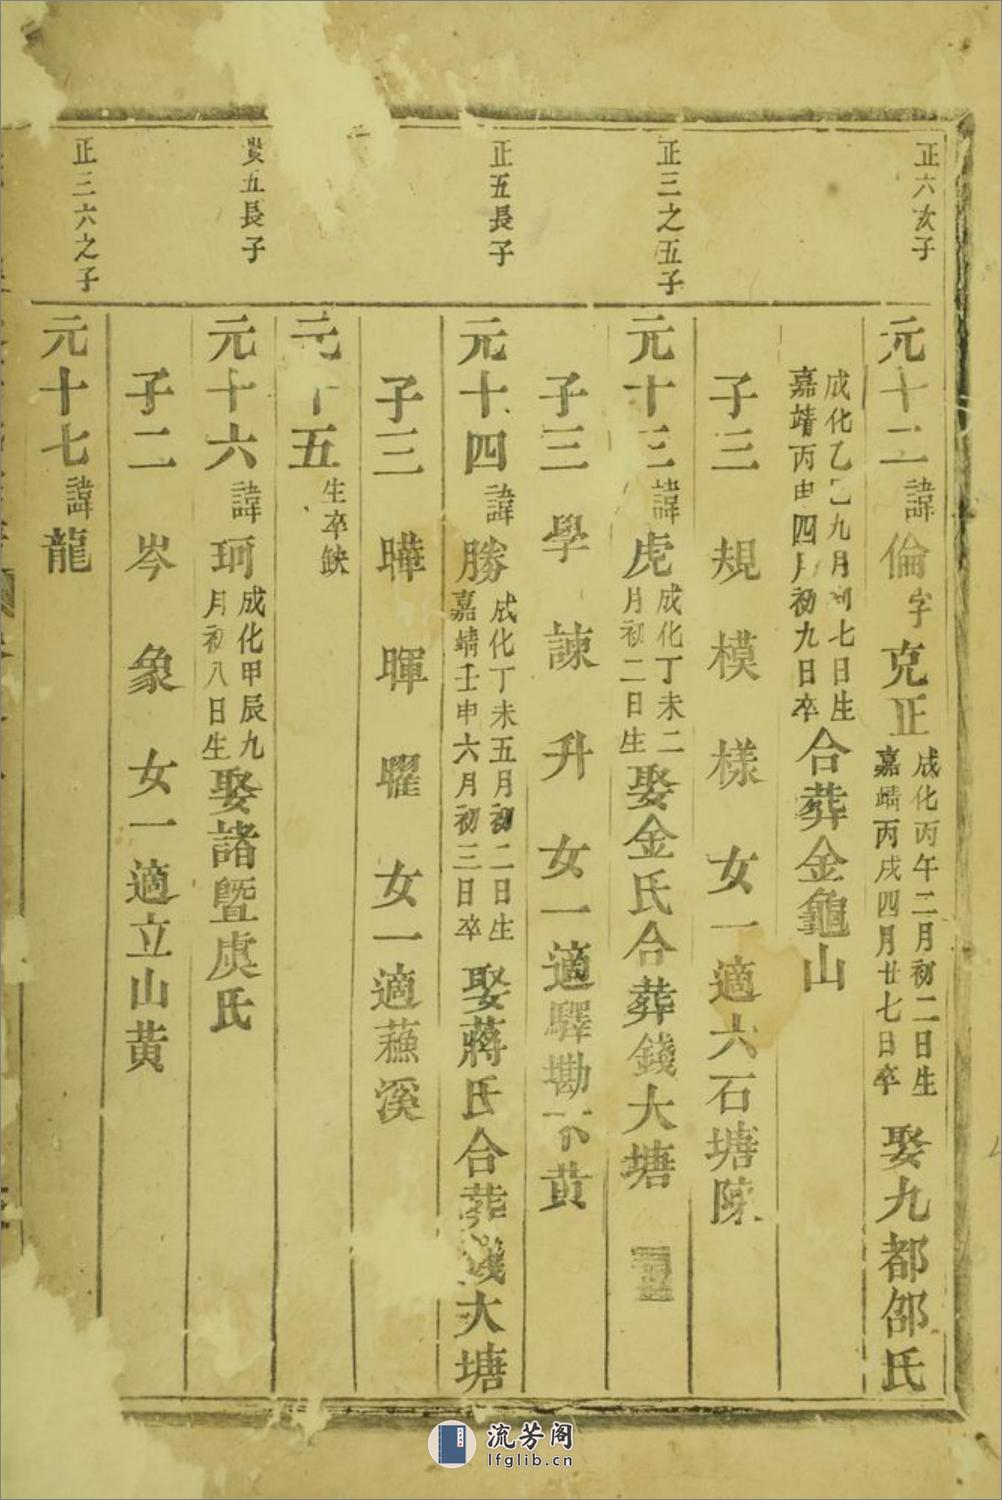 正六次子
元十二諱倫字克正成化丙午二月初二日生嘉靖丙戌四月廿七日卒娶九都邵氏
成化乙巳九月初七日生嘉靖丙申四月初九日卒合葬金龜山
子三 規 模 樣 女一適六石塘陳
正三之五子
元十三諱虎成化丁未二月初二日生娶金氏合葬錢大塘
子三 學 諫 升 女一適驛勘下黃
正五長子
元十四諱勝成化丁未五月初二日生嘉靖壬申六月初三日卒娶蔣氏合葬錢大塘
子三 曄 暉 曜 女一適蘓溪
元十五生卒缺
貴五長子
元十六諱珂成化甲辰九月初八日生娶諸暨虞氏
子二 岑 象 女一適立山黃
正三六之子
元十七諱龍
流芳阁
lfglib.cn